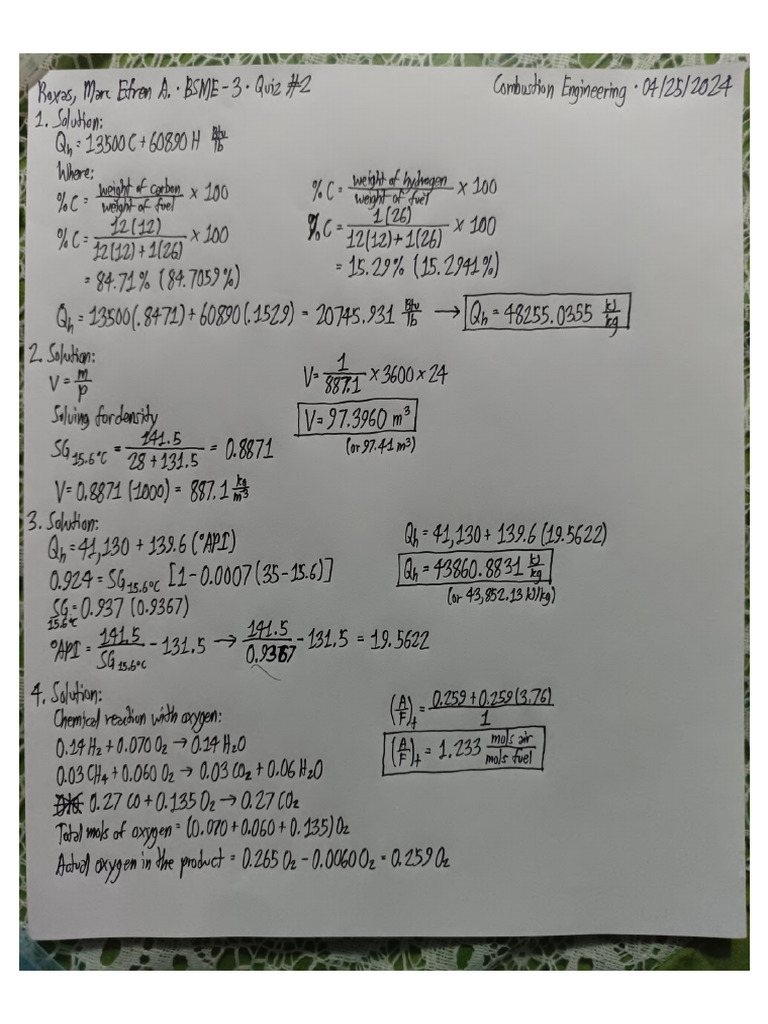 Roxas, Marc Efren A. · BSME-3 · Quiz #2 Combustion Engineering · 04/25/2024
1. Solution:
Qh = 13500 C + 60890 H Btu/lb
Where:
%C = weight of carbon / weight of fuel × 100
%C = 12(12) / 12(12)+1(26) × 100
= 84.71% (84.7059%)
%C = weight of hydrogen / weight of fuel × 100
%C = 1(26) / 12(12)+1(26) × 100
= 15.29% (15.2941%)
Qh = 13500(.8471) + 60890(.1529) = 20745.931 Btu/lb → Qh = 48255.0355 kJ/kg
2. Solution:
V = m/p
Solving for density
SG15.6°C = 141.5 / 28 + 131.5 = 0.8871
V = 0.8871 (1000) = 887.1 kg/m³
V = 1 / 887.1 × 3600 × 24
V = 97.3960 m³
(or 97.41 m³)
3. Solution:
Qh = 41,130 + 139.6 (°API)
0.924 = SG15.6°C [1 - 0.0007 (35 - 15.6)]
SG15.6°C = 0.937 (0.9367)
°API = 141.5 / SG15.6°C - 131.5 → 141.5 / 0.9367 - 131.5 = 19.5622
Qh = 41,130 + 139.6 (19.5622)
Qh = 43860.8831 kJ/kg
(or 43,852.13 kJ/kg)
4. Solution:
Chemical reaction with oxygen:
0.14 H₂ + 0.070 O₂ → 0.14 H₂O
0.03 CH₄ + 0.060 O₂ → 0.03 CO₂ + 0.06 H₂O
0.27 CO + 0.135 O₂ → 0.27 CO₂
Total mols of oxygen = (0.070 + 0.060 + 0.135) O₂
Actual oxygen in the product = 0.265 O₂ - 0.0060 O₂ = 0.259 O₂
(A/F)t = 0.259 + 0.259 (3.76) / 1
(A/F)t = 1.233 mols air / mols fuel